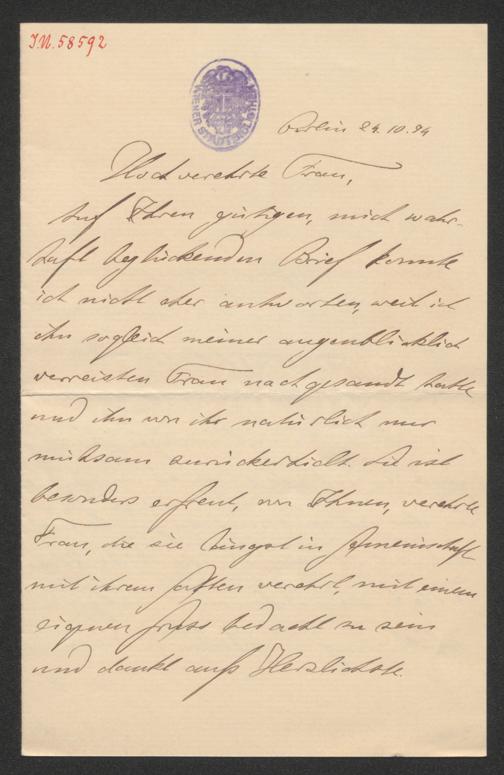 I.N. 58592
WIENER STADTBIBLIOTHEK
Berlin 24.10.94
Hochverehrte Frau,
auf Ihren gütigen, mich wahr-
haft beglückenden Brief konnte
ich nicht eher antworten, weil ich
ihn sogleich meiner augenblicklich
verreisten Frau nachgesandt hatte
und ihn von ihr natürlich nur
mühsam zurückerhielt. Sie ist
besonders erfreut, von Ihnen, verehrte
Frau, die sie längst in Gemeinschaft
mit ihrem Gatten verehrt, mit einem
eigenen Gruss bedacht zu sein
und dankt aufs Herzlichste.